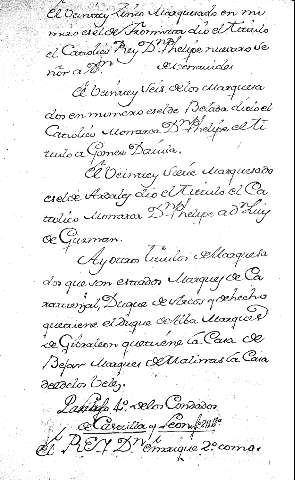 El Veinte y cinco Marquesado en nu
mero es el de Fromista dio el titulo
el Catholico Rey Dn. Phelipe nuestro Se
ñor a Dn. de Venavides
El Veinte y Seis de los Marquesa
dos en numero es el de Belada dio el
Catholico Monarca Dn. Phelipe el ti
tulo a Gomez Davila.
El Veinte y Siete Marquesado
es el de Ardales dio el titulo el Ca
tholico Monarca Dn. Phelipe a dn. Luis
de Guzman.
Ay otros titulos de Marquesa
dos que son estados Marques de Ca
Duque de Arcos y de hecho
que tiene el Duque de Alba Marques
de Gibraleon que tiene la Casa de
Bejar Marques de Molina la Casa
de los Velez.
Parrafo 4º. de los Condados
de Castilla y Leon
El REY Dn. Enrique 2º como